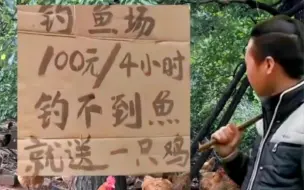 钓鱼场
100元/4小时
钓不到魚
就送一只鸡